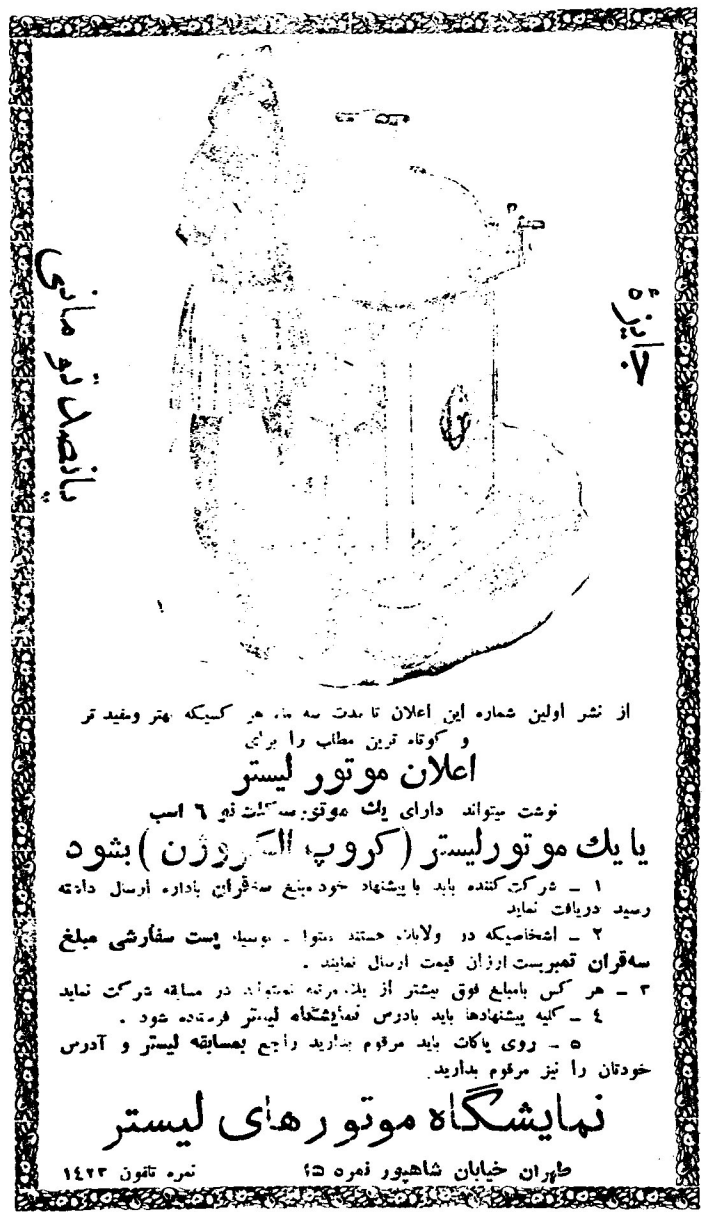 جایزهٔ
پانصد تومانی
از نشر اولین شماره این اعلان تا مدت سه ماه هر کسیکه بهتر ومفید تر
و کوتاه ترین مطلب را برای
اعلان موتور لیستر
نوشت میتواند دارای یك موتور سیکلت نیو ٦ اسب
یا یك موتور لیستر (کروپ الکتروژن) بشود
١ ـ شرکت کننده باید با پیشنهاد خود مبلغ سه‌قران باداره ارسال داشته
رسید دریافت نماید
٢ ـ اشخاصیکه در ولایات هستند بوسیله پست سفارشی مبلغ
سه‌قران تمبر پست ارزان قیمت ارسال نمایند .
٣ ـ هر کس بامبلغ فوق بیشتر از یك مرتبه نمیتواند در مسابقه شرکت نماید
٤ ـ کلیه پیشنهادها باید بادرس نمایشگاه لیستر فرستاده شود .
٥ ـ روی پاکات باید مرقوم بدارید راجع بمسابقه لیستر و آدرس
خودتان را نیز مرقوم بدارید.
نمایشگاه موتورهای لیستر
طهران خیابان شاهپور نمره نمره تلفون ١٤٢٣